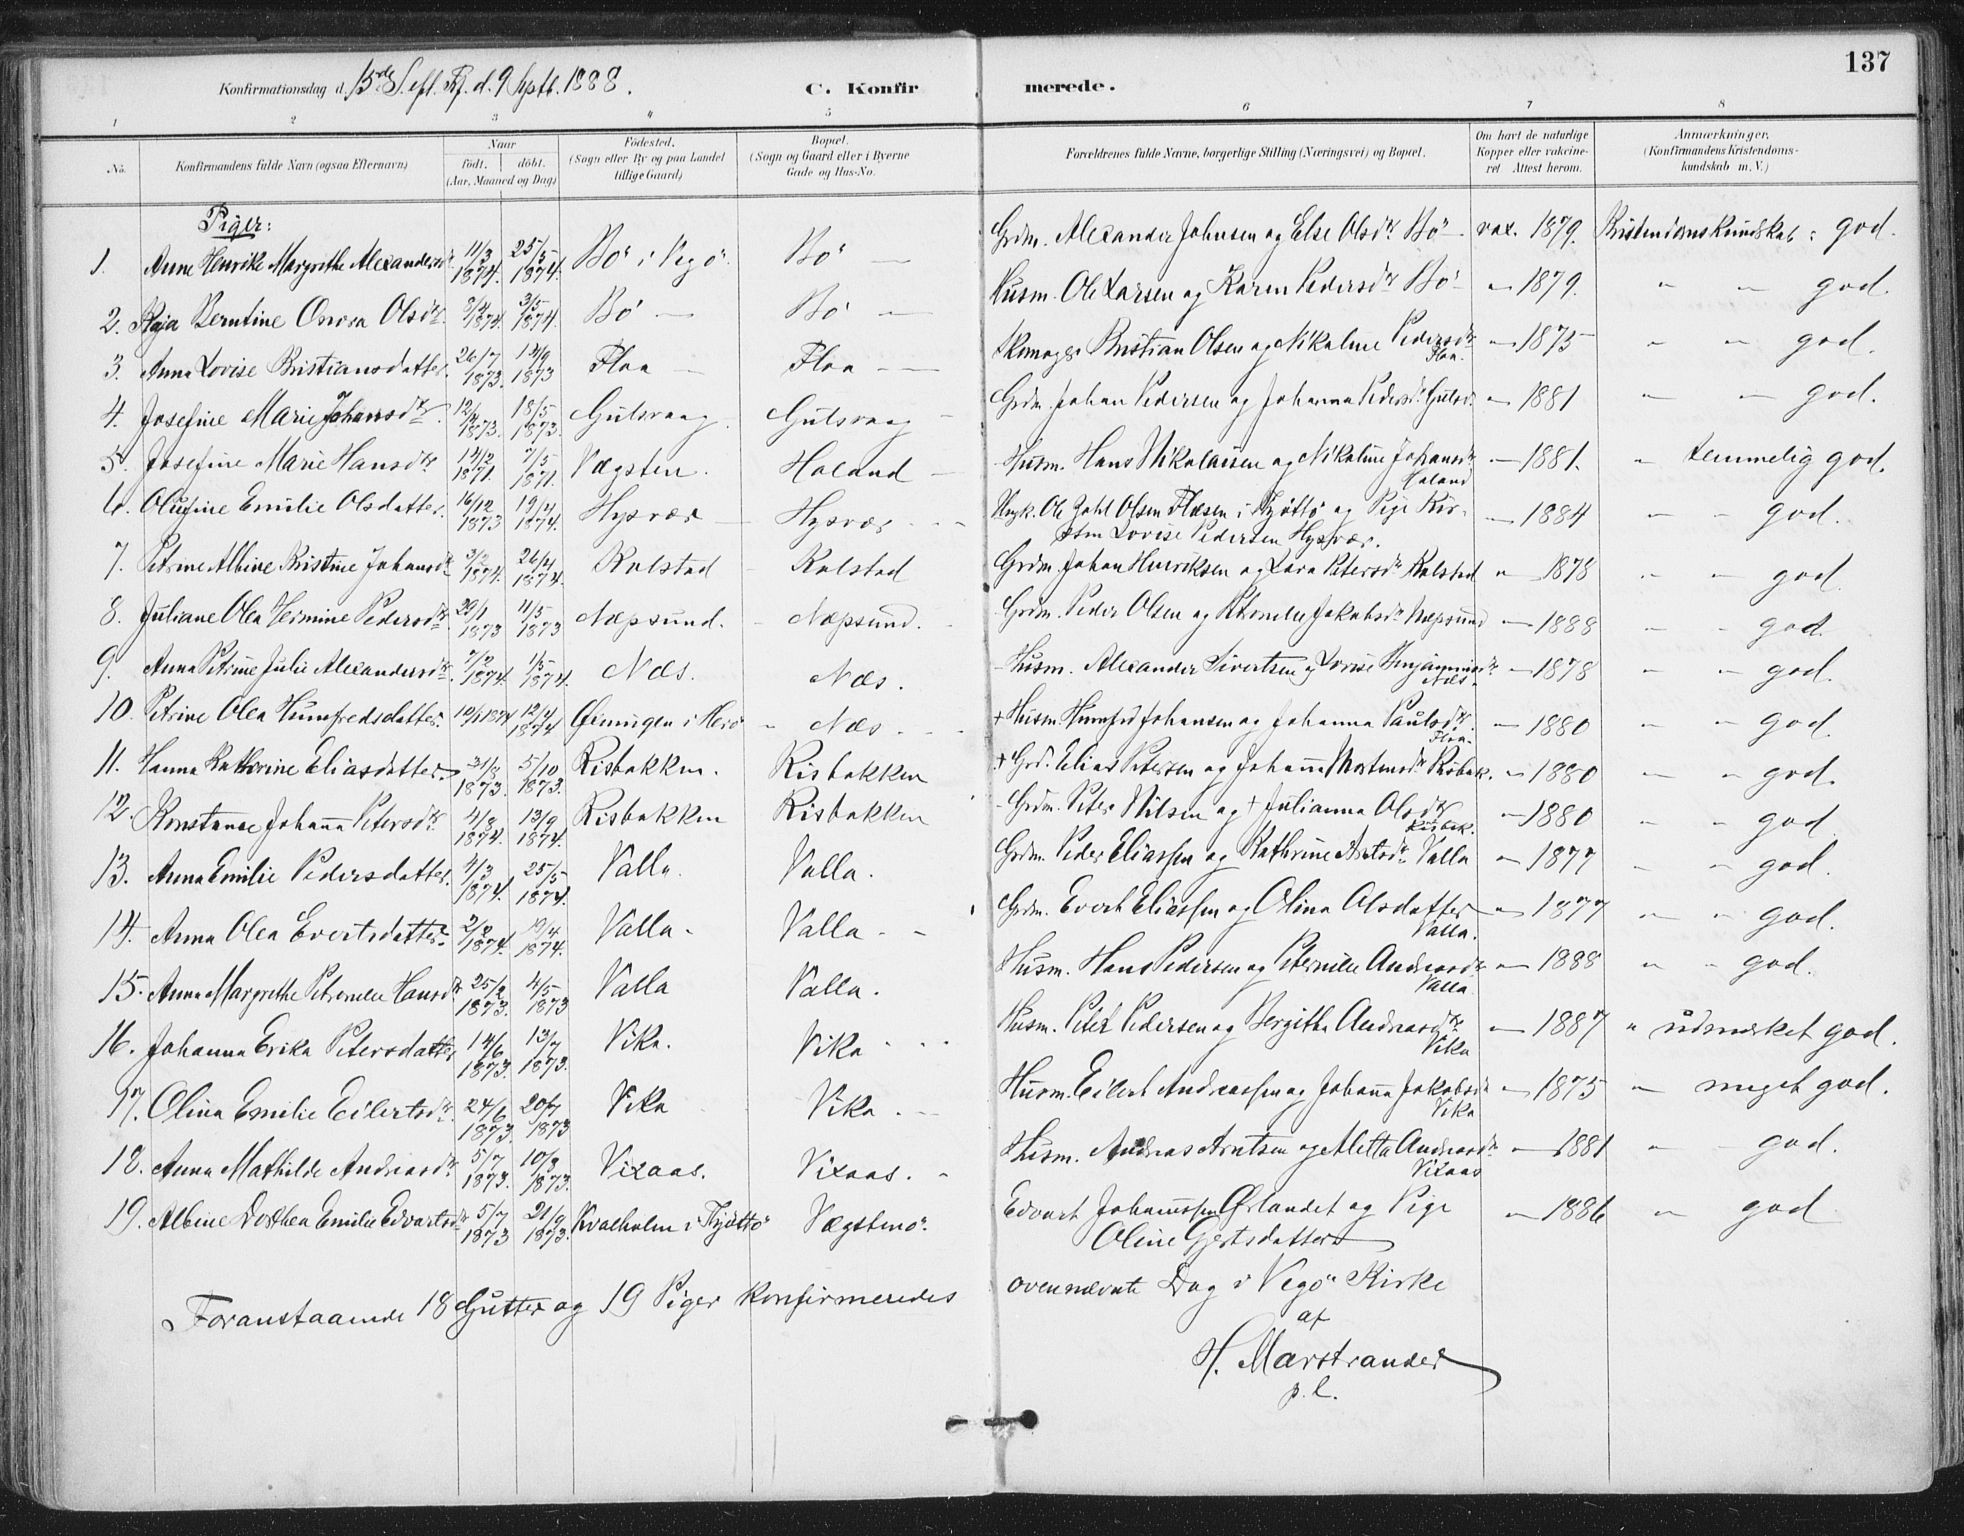 137
Konfirmationsdag d. 15de S. efl. Tr. d. 9 Septb. 1888. C. Konfirmerede.
1 2 3 4 5 6 7 8
No. Konfirmandens fulde Navn (ogsaa Efternavn) Naar født, døbt. (Aar, Maaned og Dag) Fødested, (Sogn eller By og paa Landet tillige Gaard) Bopæl. (Sogn og Gaard eller i Byerne Gade og Hus-No. Forældrenes fulde Navne, borgerlige Stilling (Næringsvei) og Bopæl. Om havt de naturlige Kopper eller vakcineret Attest herom. Anmærkninger, (Konfirmandens Kristendomskundskab m. V.)
Piger:
1. Anne Henrike Margrethe Alexandersdtr 11/3 1874. 25/5 1874. Bö i Vegö Bö — Grdm. Alexander Johnsen og Else Olsdtr Bö — vax. 1879. Kristendomskundskab: god.
2. Kaja Berntine Onora Olsdtr. 8/2 1874. 3/5 1874. Bö — Bö — Husm. Ole Larsen og Karen Pedersdtr Bö — " 1879. " — god.
3. Anna Lovise Kristiansdatter. 26/7 1873. 13/9 1873 Floa — Floa — Skomager Kristian Olsen og Nikoline Pedersdtr Floa. — 1875 " — god.
4. Josefine Marie Johansdtr. 12/4 1873. 18/5 1873. Gulsvaag Gulsvaag — Grdm. Johan Pedersen og Johanna Pedersd. Gulsv. — 1881 — — god.
5. Josefine Marie Hansdtr 13/2 1871. 7/5 1871. Vægsten. Holand — Husm. Hans Nikolaisen og Nikoline Johansdtr Holand — 1881. " temmelig god.
6. Olufine Emilie Olsdatter. 16/12 1873 19/4 1874. Hysvær — Hysvær — Ole Zahl Olsen Flæsen i Tjøttø og Pige Kirsten Lovise Pedersen Hysvær. — 1884 — — god.
7. Petrine Albine Kristine Johansdtr 3/2 1874. 26/4 1874. Rolstad — Rolstad Grdm. Johan Henriksen og Lara Petersdtr Rolstad " — 1878 " — god
8. Juliane Olea Hermine Pedersdtr 29/1 1873 11/5 1873 Næpsund. — Næpsund. Grdm. Peder Olsen og Petrnelle Jakobsdtr Næpsund — 1888 — — god.
9. Anna Petrine Julie Alexandersdtr. 7/2 1874. 1/5 1874. Næs. Næs. Husm. Alexander Sivertsen og Lovise Benjaminsdtr Næs. — 1878 — — god.
10. Petrine Olea Humfredsdatter. 10/1 1874 12/4 1874 i Herö " Næs. — + Husm. Humfred Johansen og Johanna Paulsdtr. Floa. — 1880 — — god.
11. Hanna Kathrine Eliasdatter. 31/8 1873. 5/10 1873. Risbakken. Risbakken + Grd. Elias Petersen og Johanna Mortensdtr Risbak. " 1880 — — god.
12. Konstanse Johanna Petersdtr. 4/8 1874. 13/9 1874. Risbakken Risbakken Grdm. Peter Nilsen og + Julianna Olsdtr Risbak. — 1880 — — god
13. Anna Emilie Pedersdatter. 4/3 1874. 25/5 1874. Valla. Valla. Grdm. Peder Eliassen og Kathrine Arntsdtr Valla " 1877 — — god.
14. Anna Olea Evertsdatter. 2/2 1874. 19/4 1874. Valla. Valla. — Grdm. Evert Eliassen og Olina Olsdatter Valla. — 1877 — — god.
15. Anna Margrethe Petrnelle Hansdtr. 25/2 1873. 4/5 1873 Valla Valla. Husm. Hans Pedersen og Peternelle Andreasdtr Valla — 1888 " — god.
16. Johanna Erika Petersdatter 14/6 1873. 13/7 1873. Vika. Vika Husm. Peter Pedersen og Bergitha Andreasdtr Vika — 1887 " udmærket god.
17. Olina Emilie Eilertsdtr. 24/6 1873. 20/7 1873 Vika Vika. — Husm. Eilert Andreassen og Johanna Jakobsdtr Vika — 1875 — meget god.
18. Anna Mathilde Andreasdtr. 5/7 1873. 10/8 1873. Vixaas. Vixaas. — Husm. Andreas Arntsen og Mette Andreasdtr Vixaas — 1881 — — god.
19. Albine Dorthea Emilie Edvartsdtr 5/7 1873 21/9 1873. Kvalholm i Tjöttö Vægstenö. Edvart Johanssen Ørlandet og Pige Oline Gjertsdatter — 1886 — god
Foranstaaende 18 Gutter og 19 Piger konfirmeredes ovennævnte Dag i Vegö Kirke
af
H. Marstrander
p. l.